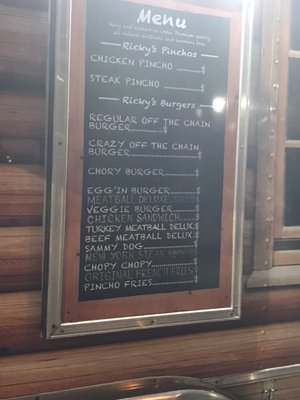 Menu
all natural
Ricky's Pinchos
CHICKEN PINCHO ..........$
STEAK PINCHO ..........$
Ricky's Burgers
REGULAR OFF THE CHAIN
BURGER............$
CRAZY OFF THE CHAIN
BURGER.....................$
CHORY BURGER................$
EGG'IN BURGER..............$
MEATBALL DELUXE
VEGGIE BURGER.............$
CHICKEN SANDWICH.......$
TURKEY MEATBALL DELUX.$
BEEF MEATBALL DELUX.$
SAMMY DOG................$
NEW YORK STEAK
CHOPY CHOPY..............$
ORIGINAL FRENCH FRIES.$
PINCHO FRIES..............$